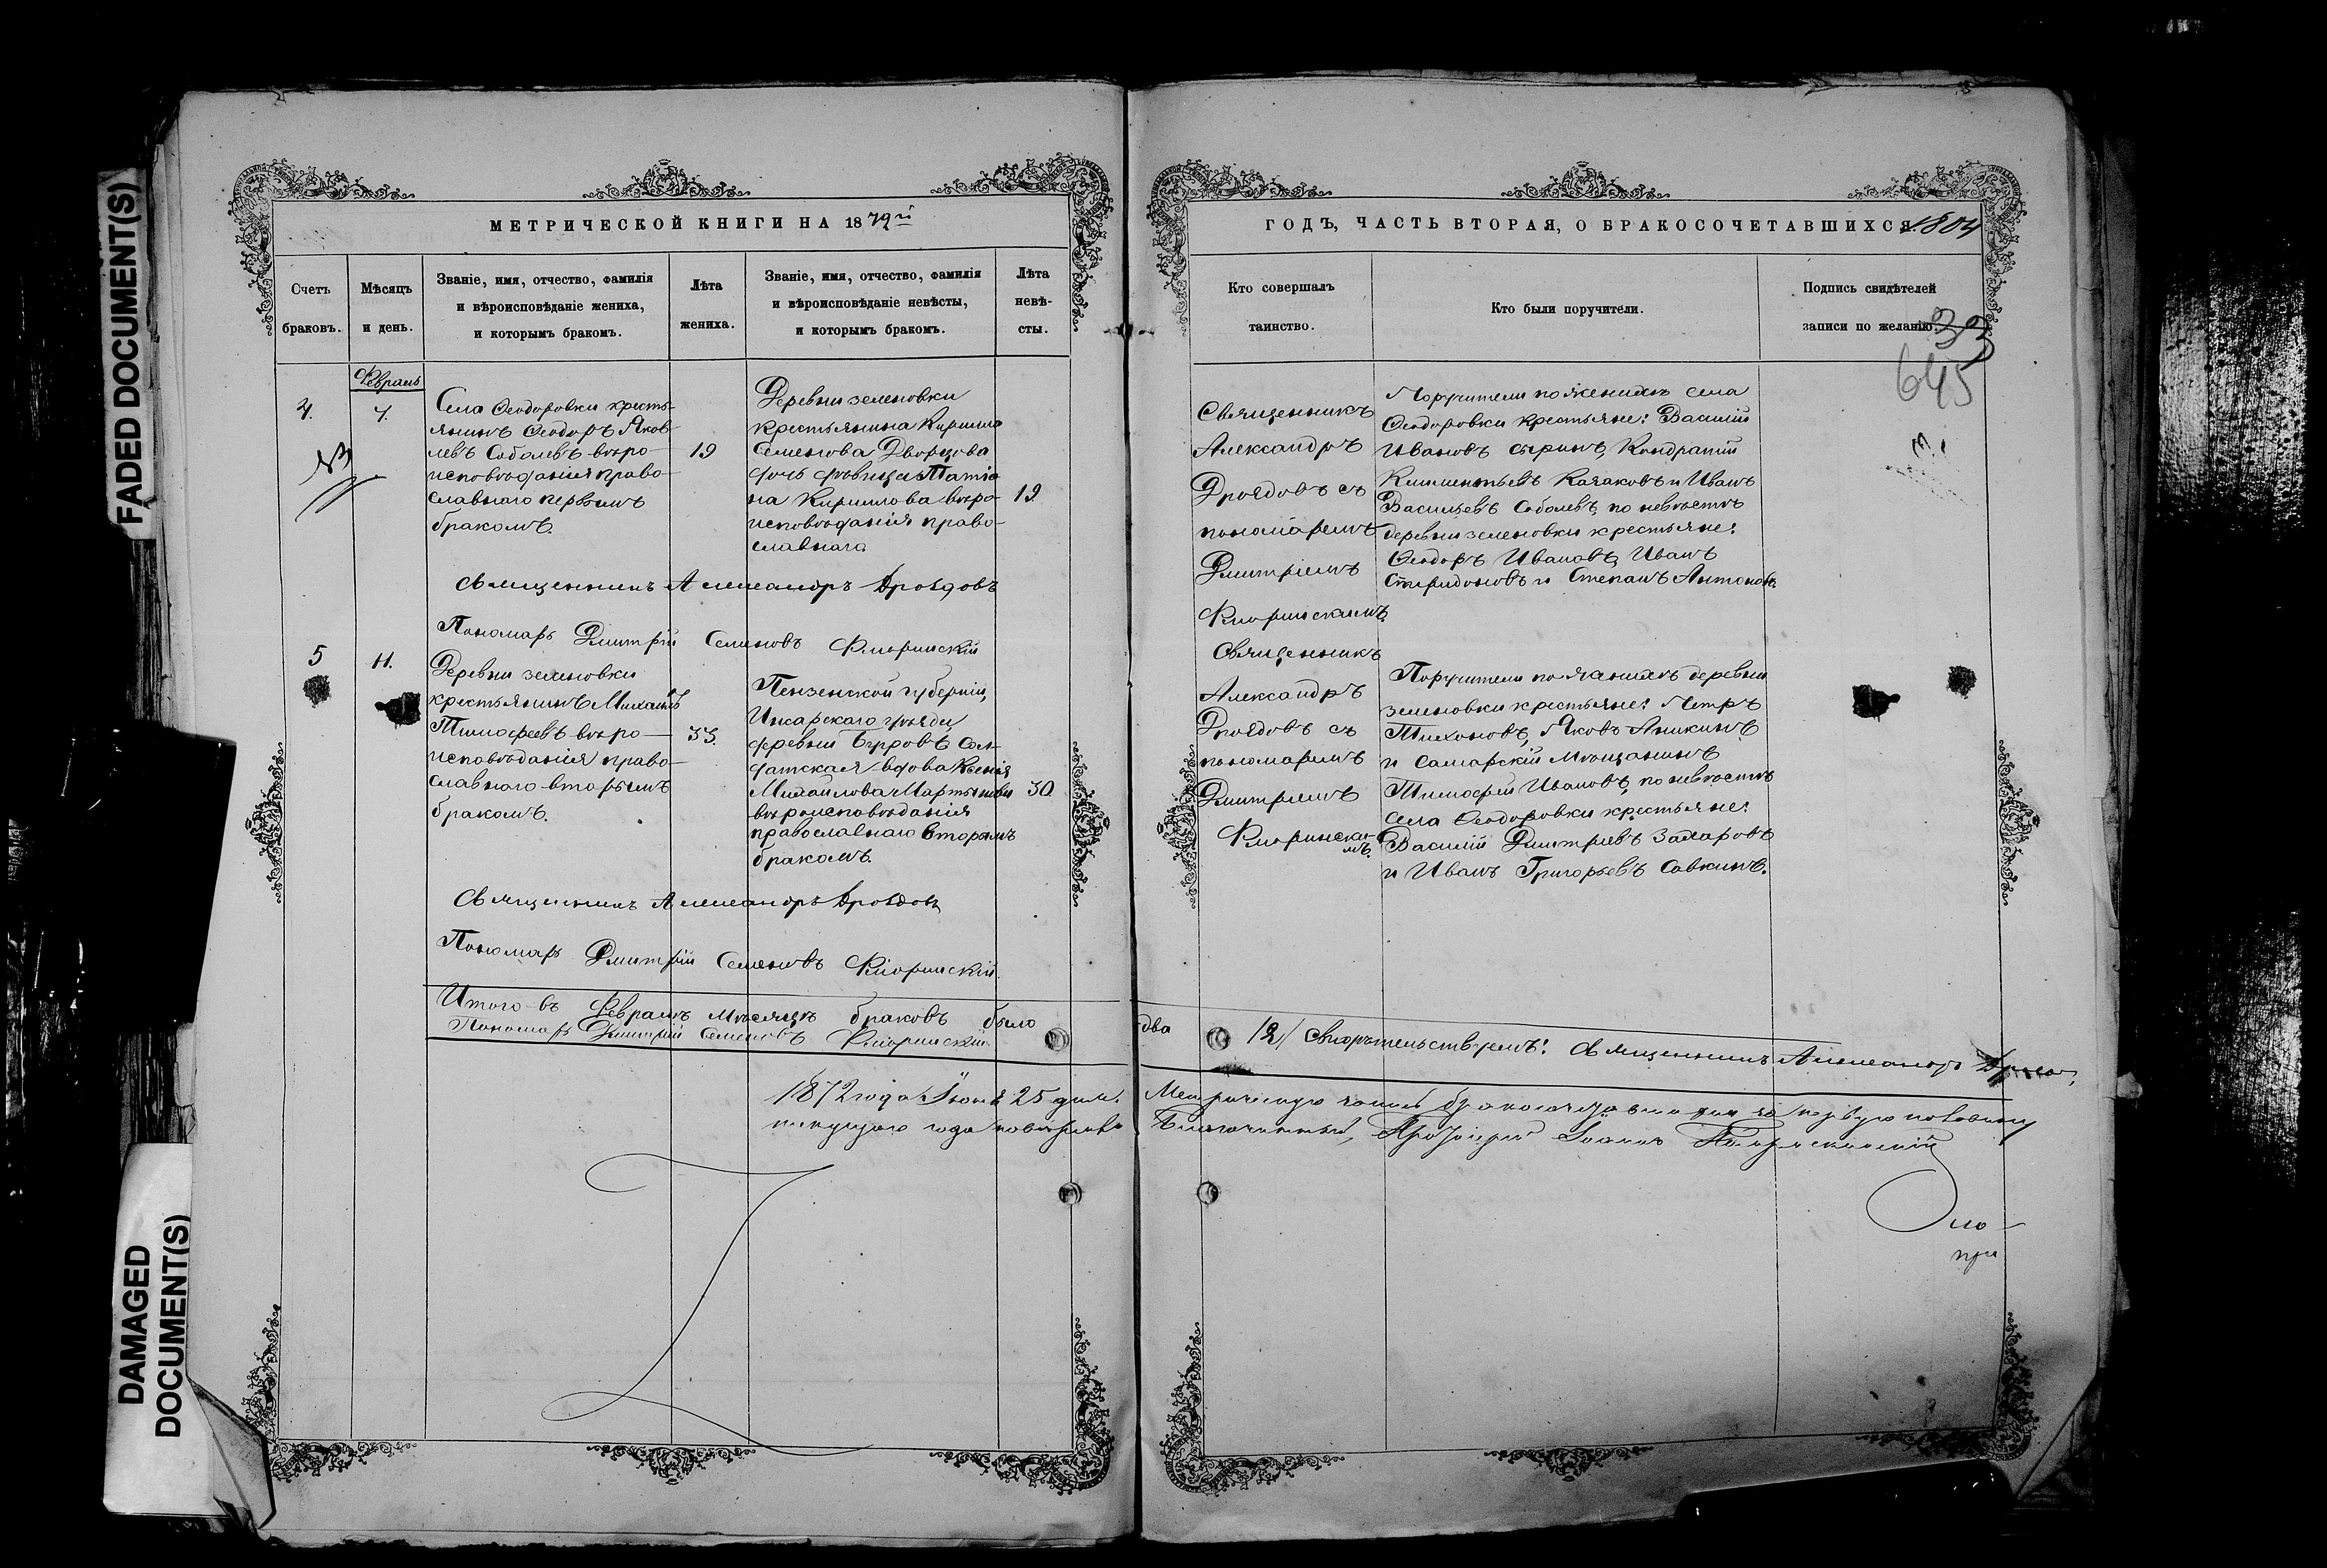 FADED DOCUMENT(S)
DAMAGED
DOCUMENT(S)
МЕТРИЧЕСКОЙ КНИГИ НА 1872й
Счетъ
браковъ.
Мѣсяцъ
и день.
Званіе, имя, отчество, фамилія
и вѣроисповѣданіе жениха,
и которымъ бракомъ.
Лѣта
жениха.
Званіе, имя, отчество, фамилія
и вѣроисповѣданіе невѣсты,
и которымъ бракомъ.
Лѣта
невѣ-
сты.
Февраль
4.
7.
Села Ѳеодоровки кресть-
янинъ Ѳеодоръ Яков-
левъ Соболевъ вѣро-
исповѣданія право-
славнаго первымъ
бракомъ.
19
Деревни Зеленовки
крестьянина Кирилла
Семенова Дворцова
дочь дѣвица Татiа-
на Кириллова вѣро-
исповѣданія право-
славнаго
19
Священникъ Александръ Дроздовъ
Пономарь Дмитрій Семеновъ Флоринскій
5
11.
Деревни Зеленовки
крестьянинъ Михаилъ
Тимофеевъ вѣро-
исповѣданія право-
славнаго вторымъ
бракомъ.
33.
Пензенской губерніи,
Инсарскаго уѣзда,
деревни Сол-
датская вдова Ксенія
Михаилова Мартынова
вѣроисповѣданія
православнаго вторымъ
бракомъ.
30
Священникъ Александръ Дроздовъ
Пономарь Дмитрій Семеновъ Флоринскій
Итого въ Февралѣ мѣсяцѣ браковъ было
Пономарь Дмитрій Семеновъ Флоринскій
1872 года Іюня 25 дня.
текущаго года
ГОДЪ, ЧАСТЬ ВТОРАЯ, О БРАКОСОЧЕТАВШИХСЯ. 804
Кто совершалъ
таинство.
Кто были поручители.
Подпись свидѣтелей
записи по желанію.
33
645
Священникъ
Александръ
Дроздовъ съ
пономаремъ
Дмитріемъ
Флоринскимъ
Поручители по женихѣ села
Ѳеодоровки крестьяне: Василій
Ивановъ Кондратій
Климентьевъ Казаковъ и Иванъ
Васильевъ Соболевъ, по невѣстѣ
деревни Зеленовки крестьяне:
Ѳеодоръ Ивановъ, Иванъ
Спиридоновъ и Степанъ Антоновъ.
Священникъ
Александръ
Дроздовъ съ
пономаремъ
Дмитріемъ
Флорински-
мъ.
Поручители по женихѣ деревни
Зеленовки крестьяне: Петръ
Тихоновъ, Яковъ Аникинъ
и Самарскій мѣщанинъ
Тимофей Ивановъ, по невѣстѣ
села Ѳеодоровки крестьяне:
Василій Дмитріевъ Захаровъ
и Иванъ Григорьевъ Савкинъ.
два /2/ Свидѣтельствуемъ: Священникъ Александръ
Метрическую за первую половину
Благочинный, Протоіерей Іоаннъ